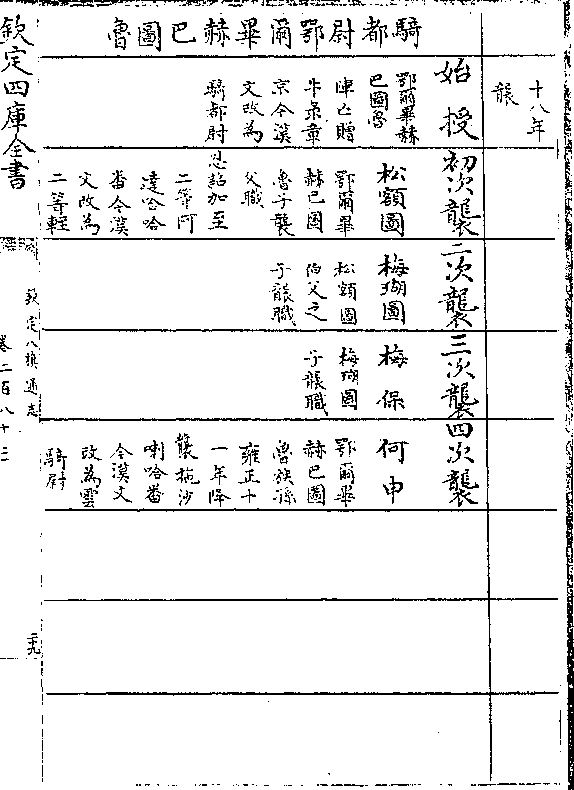 十八年
襲
騎都尉鄂爾畢赫巴圖魯
始授
鄂爾畢赫
巴圖魯
陣亡贈
牛彔章
京今漢
文改為
騎都尉
初次襲
松額圖
鄂爾畢
赫巴圖
魯子襲
父職
恩詔加至
二等阿
達哈哈
番今漢
文改為
二等輕
二次襲
梅瑚圖
松額圖
伯父之
子襲職
三次襲
梅保
梅瑚圖
子襲職
四次襲
何申
鄂爾畢
赫巴圖
魯族孫
雍正十
一年降
襲拖沙
喇哈番
今漢文
改為雲
騎尉
欽定四庫全書
欽定八旗通志
卷二百八十三